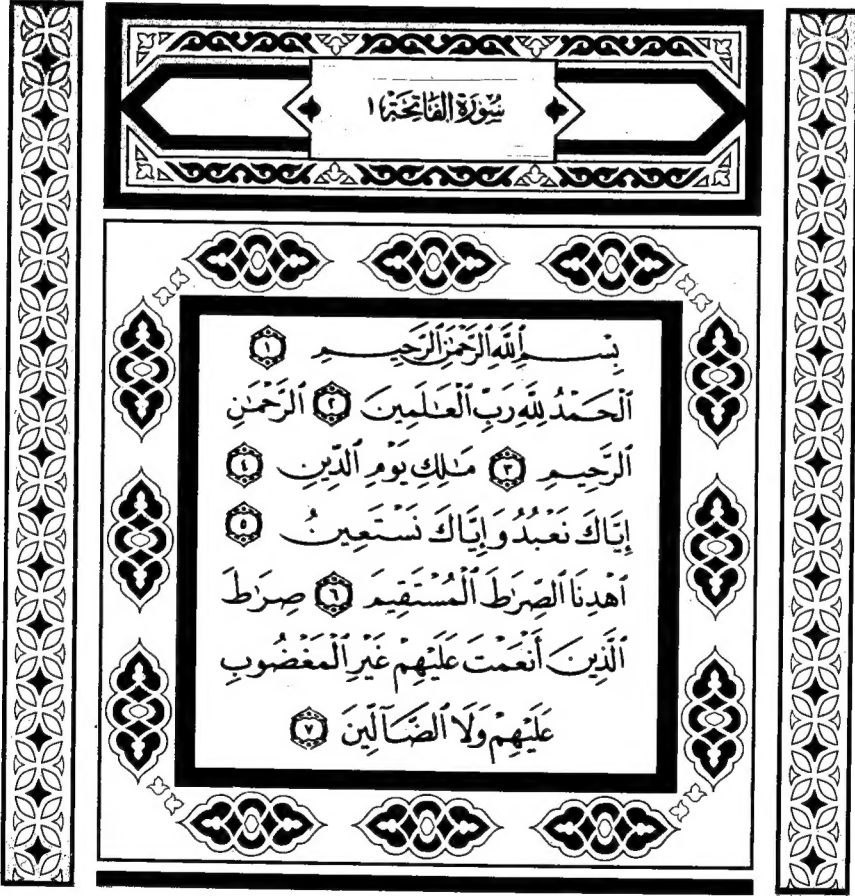 سُورَةُ الفَاتِحَةِ ١
بِسۡمِ ٱللَّهِ ٱلرَّحۡمَٰنِ ٱلرَّحِيمِ ١
ٱلۡحَمۡدُ لِلَّهِ رَبِّ ٱلۡعَٰلَمِينَ ٢ ٱلرَّحۡمَٰنِ
ٱلرَّحِيمِ ٣ مَٰلِكِ يَوۡمِ ٱلدِّينِ ٤
إِيَّاكَ نَعۡبُدُ وَإِيَّاكَ نَسۡتَعِينُ ٥
ٱهۡدِنَا ٱلصِّرَٰطَ ٱلۡمُسۡتَقِيمَ ٦ صِرَٰطَ
ٱلَّذِينَ أَنۡعَمۡتَ عَلَيۡهِمۡ غَيۡرِ ٱلۡمَغۡضُوبِ
عَلَيۡهِمۡ وَلَا ٱلضَّآلِّينَ ٧